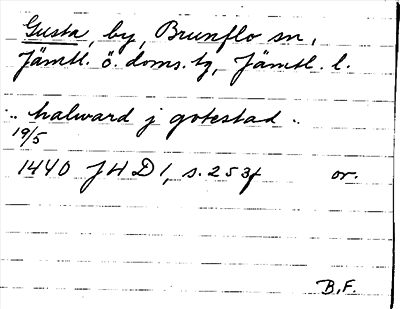 Gusta, by, Brunflo sn,
Jämtl. ö. doms. tg, Jämtl. l.
.. halward j gotestad ..
19/5
1440 JHD 1, s. 253f or.
B.F.